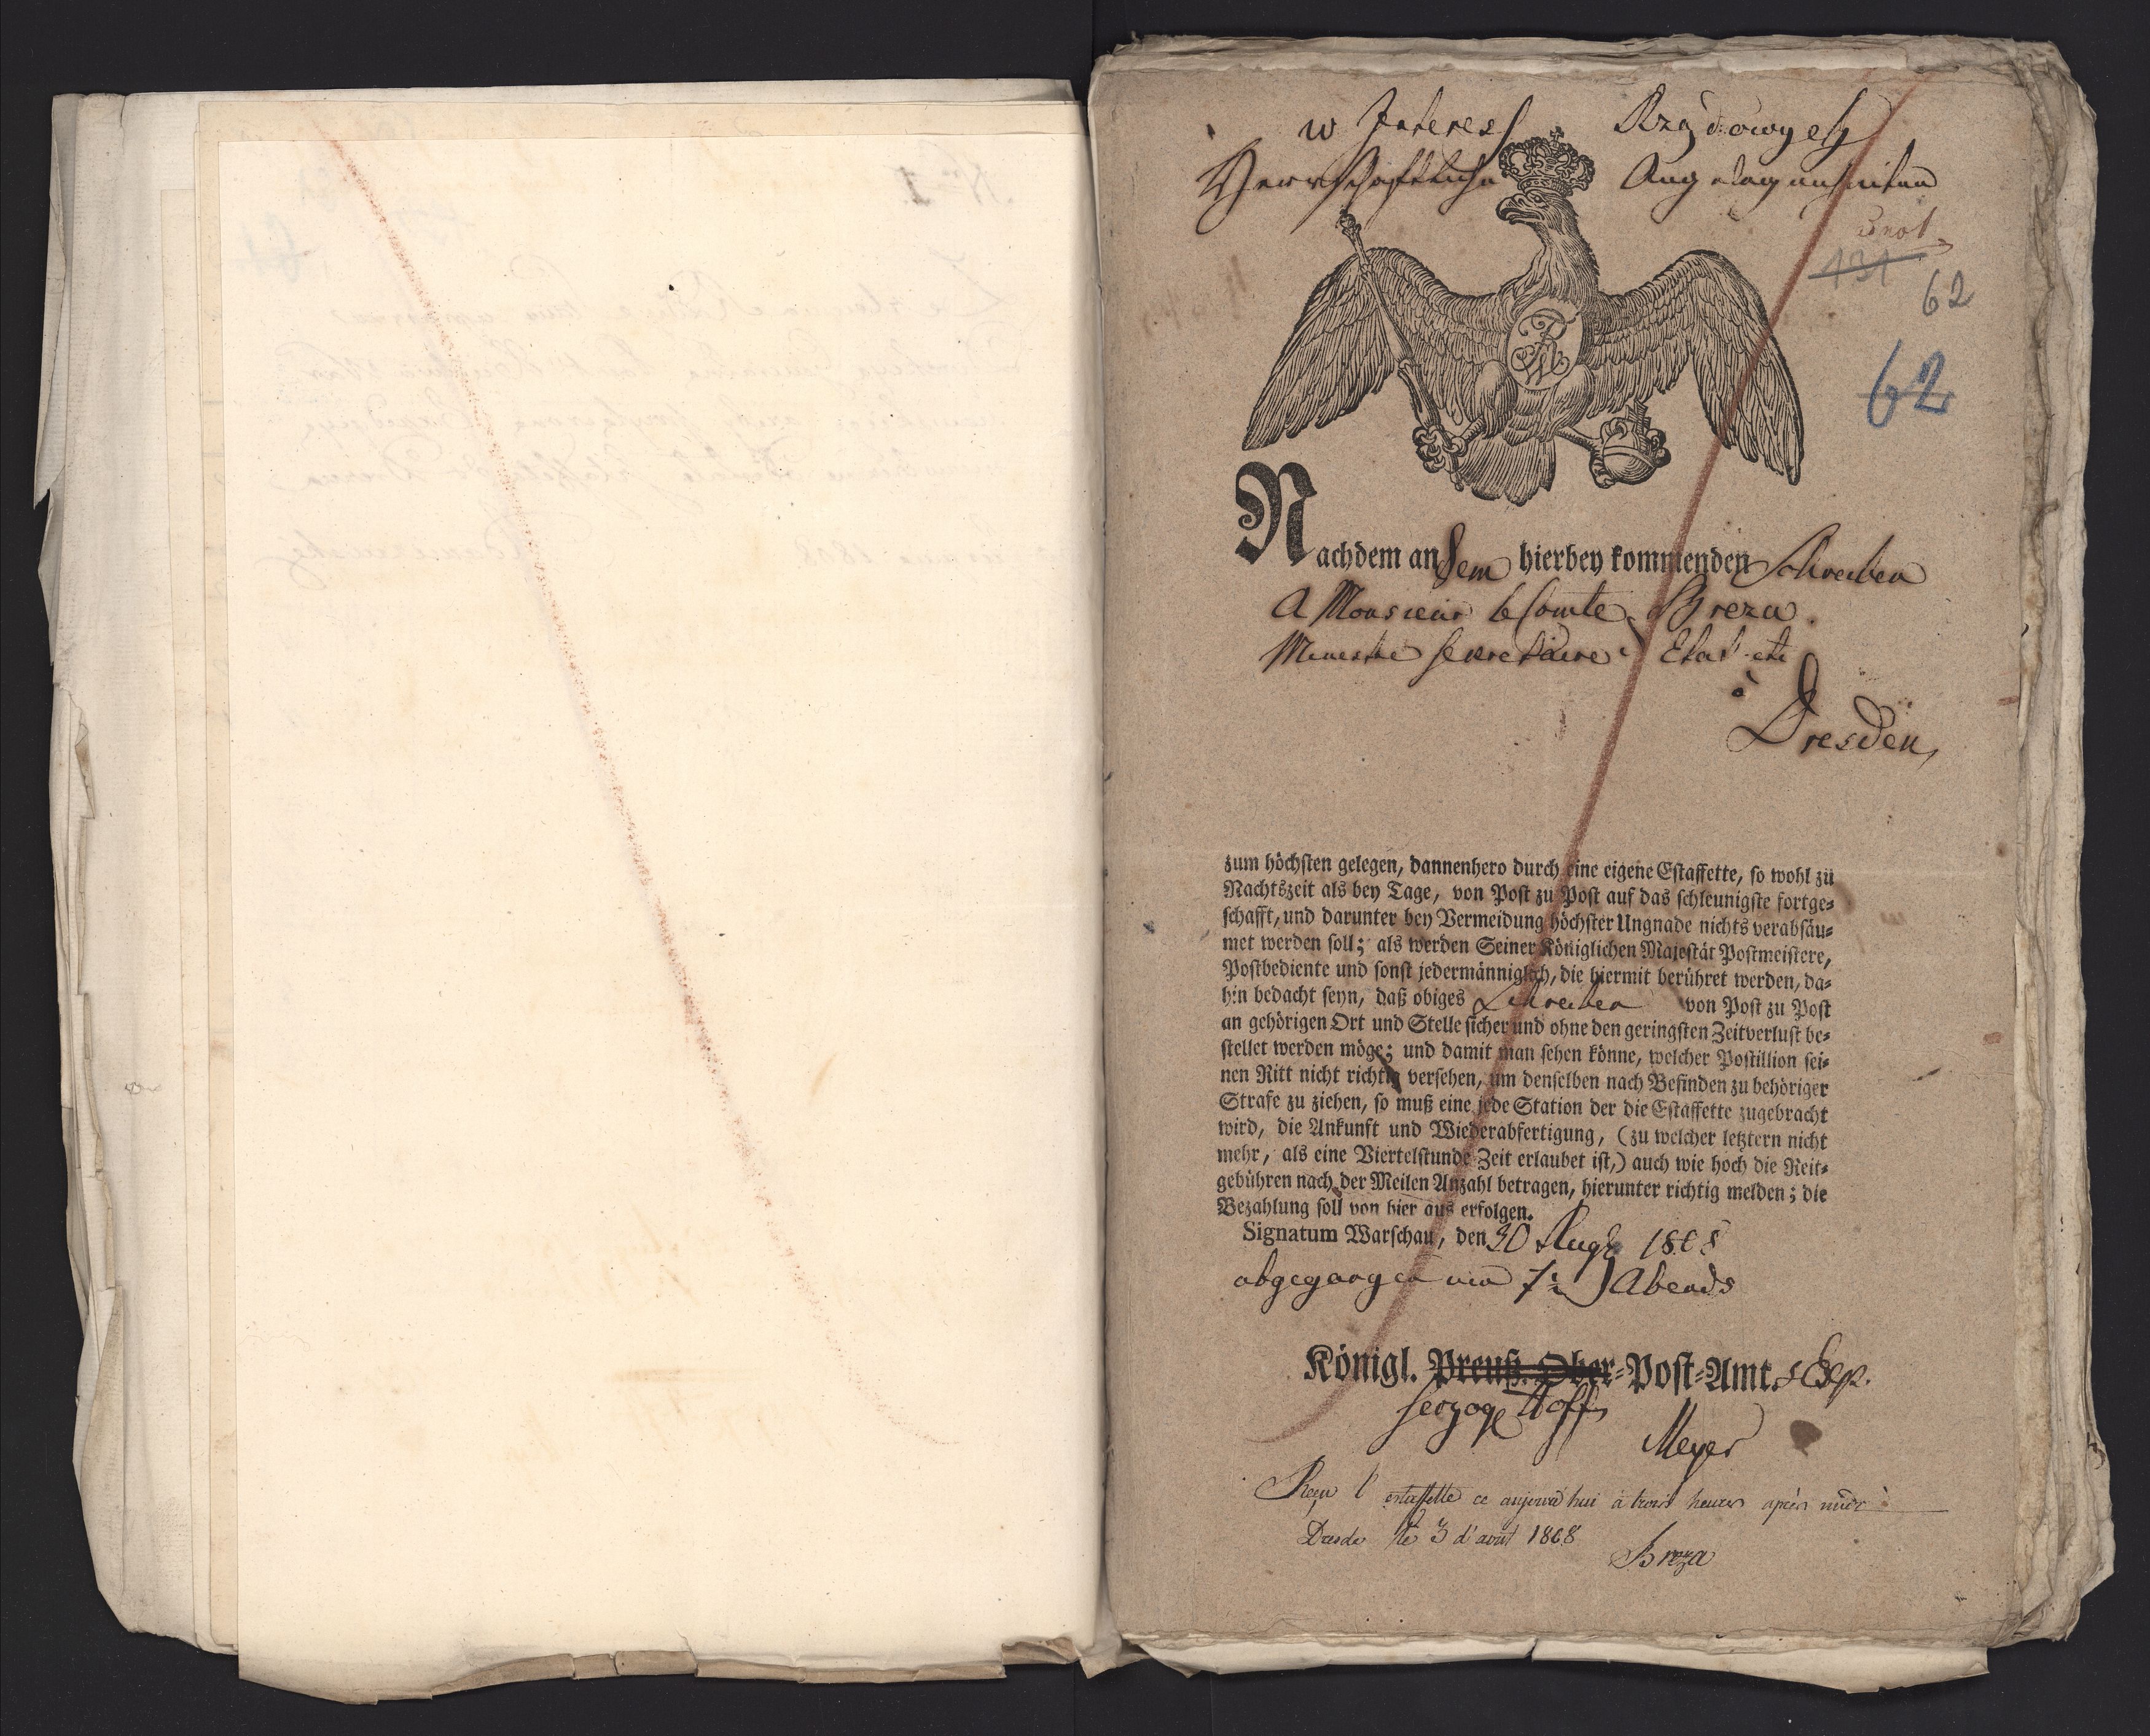 w Interess Rządowych
Herrschaftliche Angelegenheiten
131
62
62
Nachdem an dem hierbey kommenden Schreiben
A Monsieur le Comte Breza.
Ministre Secretaire d'Etat etc
à
Dresden,
zum höchsten gelegen, dannenhero durch eine eigene Estaffette, so wohl zu
Nachtszeit als bey Tage, von Post zu Post auf das schleunigste fortge-
schafft, und darunter bey Vermeidung höchster Ungnade nichts verabsäu-
met werden soll; als werden Seiner Königlichen Majestät Postmeistere,
Postbediente und sonst jedermänniglich, die hiermit berühret werden, da-
hin bedacht seyn, daß obiges Schreiben von Post zu Post
an gehörigen Ort und Stelle sicher und ohne den geringsten Zeitverlust be-
stellet werden möge; und damit man sehen könne, welcher Postillion sei-
nen Ritt nicht richtig versehen, um denselben nach Befinden zu behöriger
Strafe zu ziehen, so muß eine jede Station der die Estaffette zugebracht
wird, die Ankunft und Wiederabfertigung, (zu welcher letztern nicht
mehr, als eine Viertelstunde Zeit erlaubet ist,) auch wie hoch die Reit-
gebühren nach der Meilen Anzahl betragen, hierunter richtig melden; die
Bezahlung soll von hier aus erfolgen.
Signatum Warschau, den 30 Aug 1808
abgegangen um 7½ Abends
Königl. Preuß. Ober-Post-Amt. Exp.
Herzogl Hoff
Meyer
Reçu l'estaffette ce aujourd'hui à trois heures après midi
Dresde le 3 d'août 1808
Breza